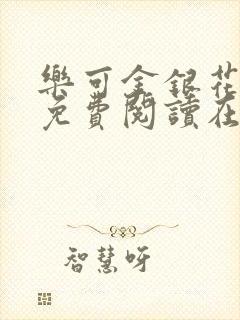 樂可金銀花
免費閱讀在
智慧呀